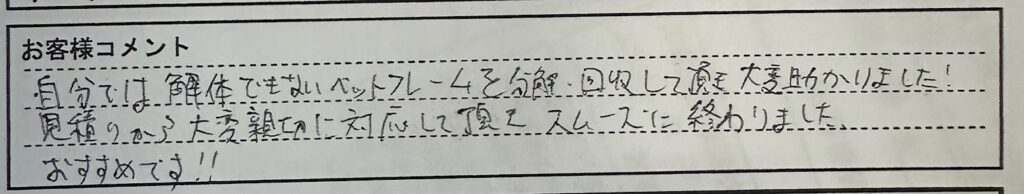 お客様コメント
自分では解体できないベットフレームを分解・回収して頂き大変助かりました!
見積りから大変親切に対応して頂きスムーズに終わりました。
おすすめです!!